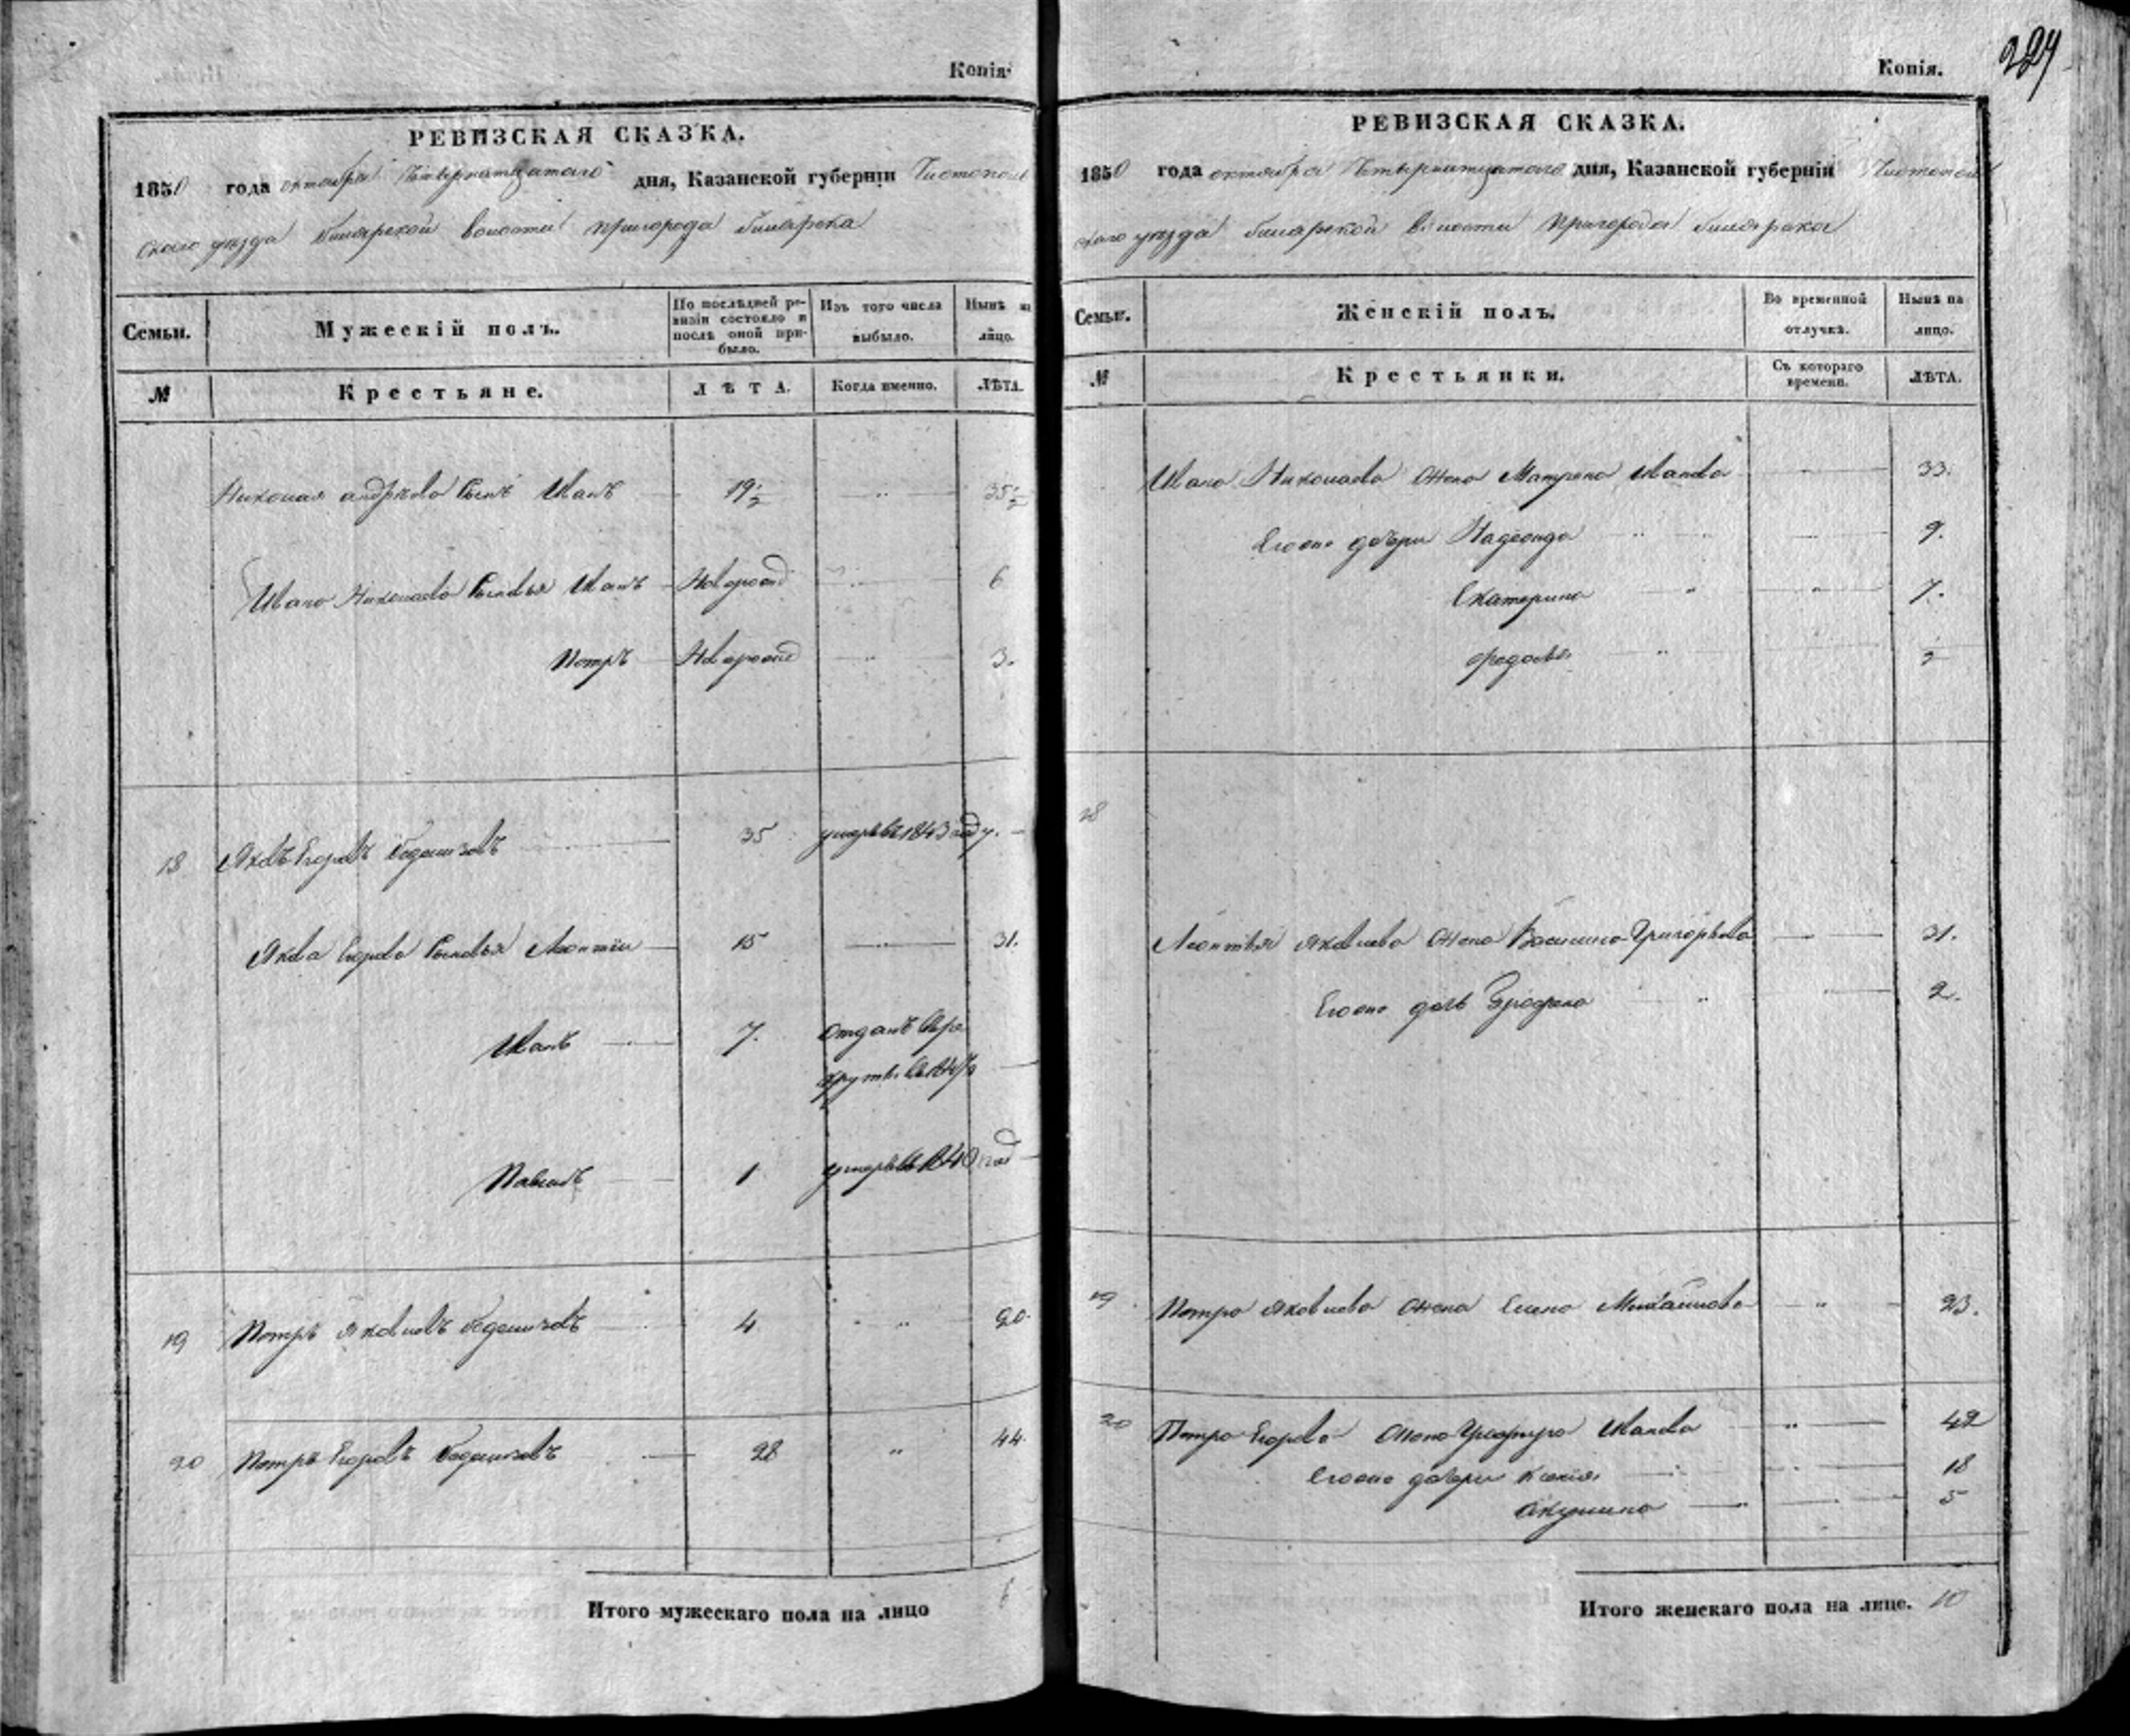 Копія.
РЕВИЗСКАЯ СКАЗКА.
1850 года октября Четырнатцатаго дня, Казанской губерніи Чистополь
скаго уезда Билярской волости пригорода Билярска
Семьи.
Мужескій полъ.
По послѣдней ре-
визіи состояло и
послѣ оной при-
было.
Изъ того числа
выбыло.
Нынѣ на
лицо.
№
Крестьяне.
ЛѢТА.
Когда именно.
ЛѢТА.
Николая андрѣева Сынъ Иванъ 19½ 35½
Ивана Николаева Сыновья Иванъ Новорожд 6
Петръ Новорожд 3.
18 Яковъ Егоровъ 35 умеръ въ 1843 году.
Якова Егорова Сыновья Леонтій 15 31.
Иванъ 7. отданъ в ре
круты в
Павелъ 1 умеръ в 1840 год
19 Петръ Яковлевъ 4 20.
20 Петръ Егоровъ 28 44.
Итого мужескаго пола на лицо 6
Копія.
229
РЕВИЗСКАЯ СКАЗКА.
1850 года октября Четырнатцатаго дня, Казанской губерніи Чистополь
скаго уезда билярской волости пригорода билярска
Семьи.
Женскій полъ.
Во временной
отлучкѣ.
Нынѣ на
лицо.
№
Крестьянки.
Съ котораго
времени.
ЛѢТА.
Ивана Николаева жена Матрена Иванова 33.
Егоже дочери Надежда 9.
Екатерина 7.
Федосья
18
Леонтья Яковлева жена Василиса Григорьева 31.
Егоже дочь 2.
19 Петра Яковлева жена Елена Михайлова 23.
20 Петра Егорова жена Иванова 42
Егоже дочери Ксенія 18
Акулина 5
Итого женскаго пола на лице. 10